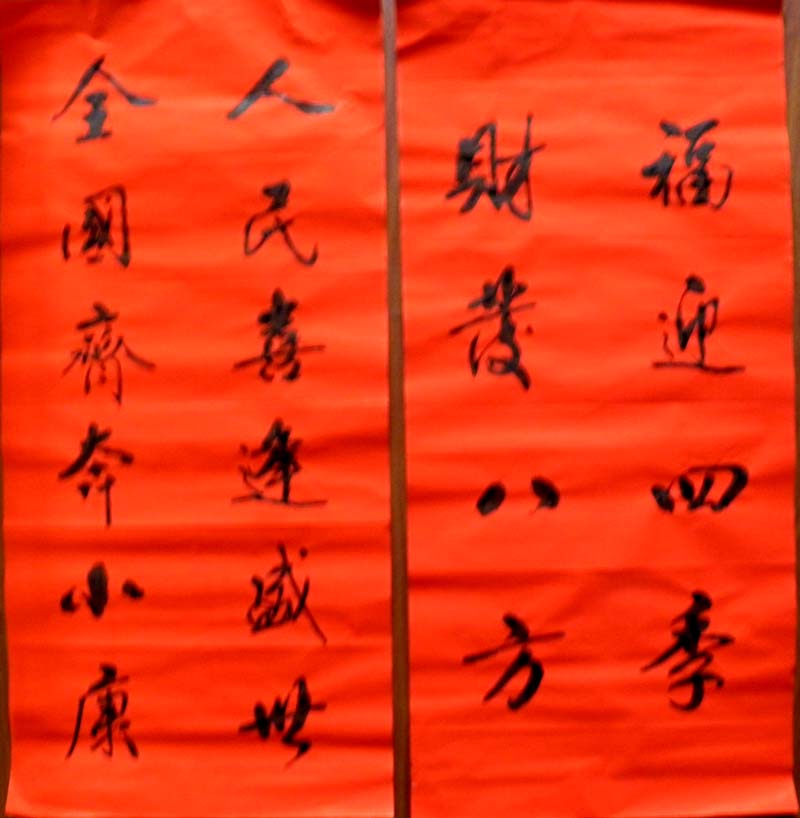 福迎四季
財發八方
人民喜逢盛世
全國齊奔小康